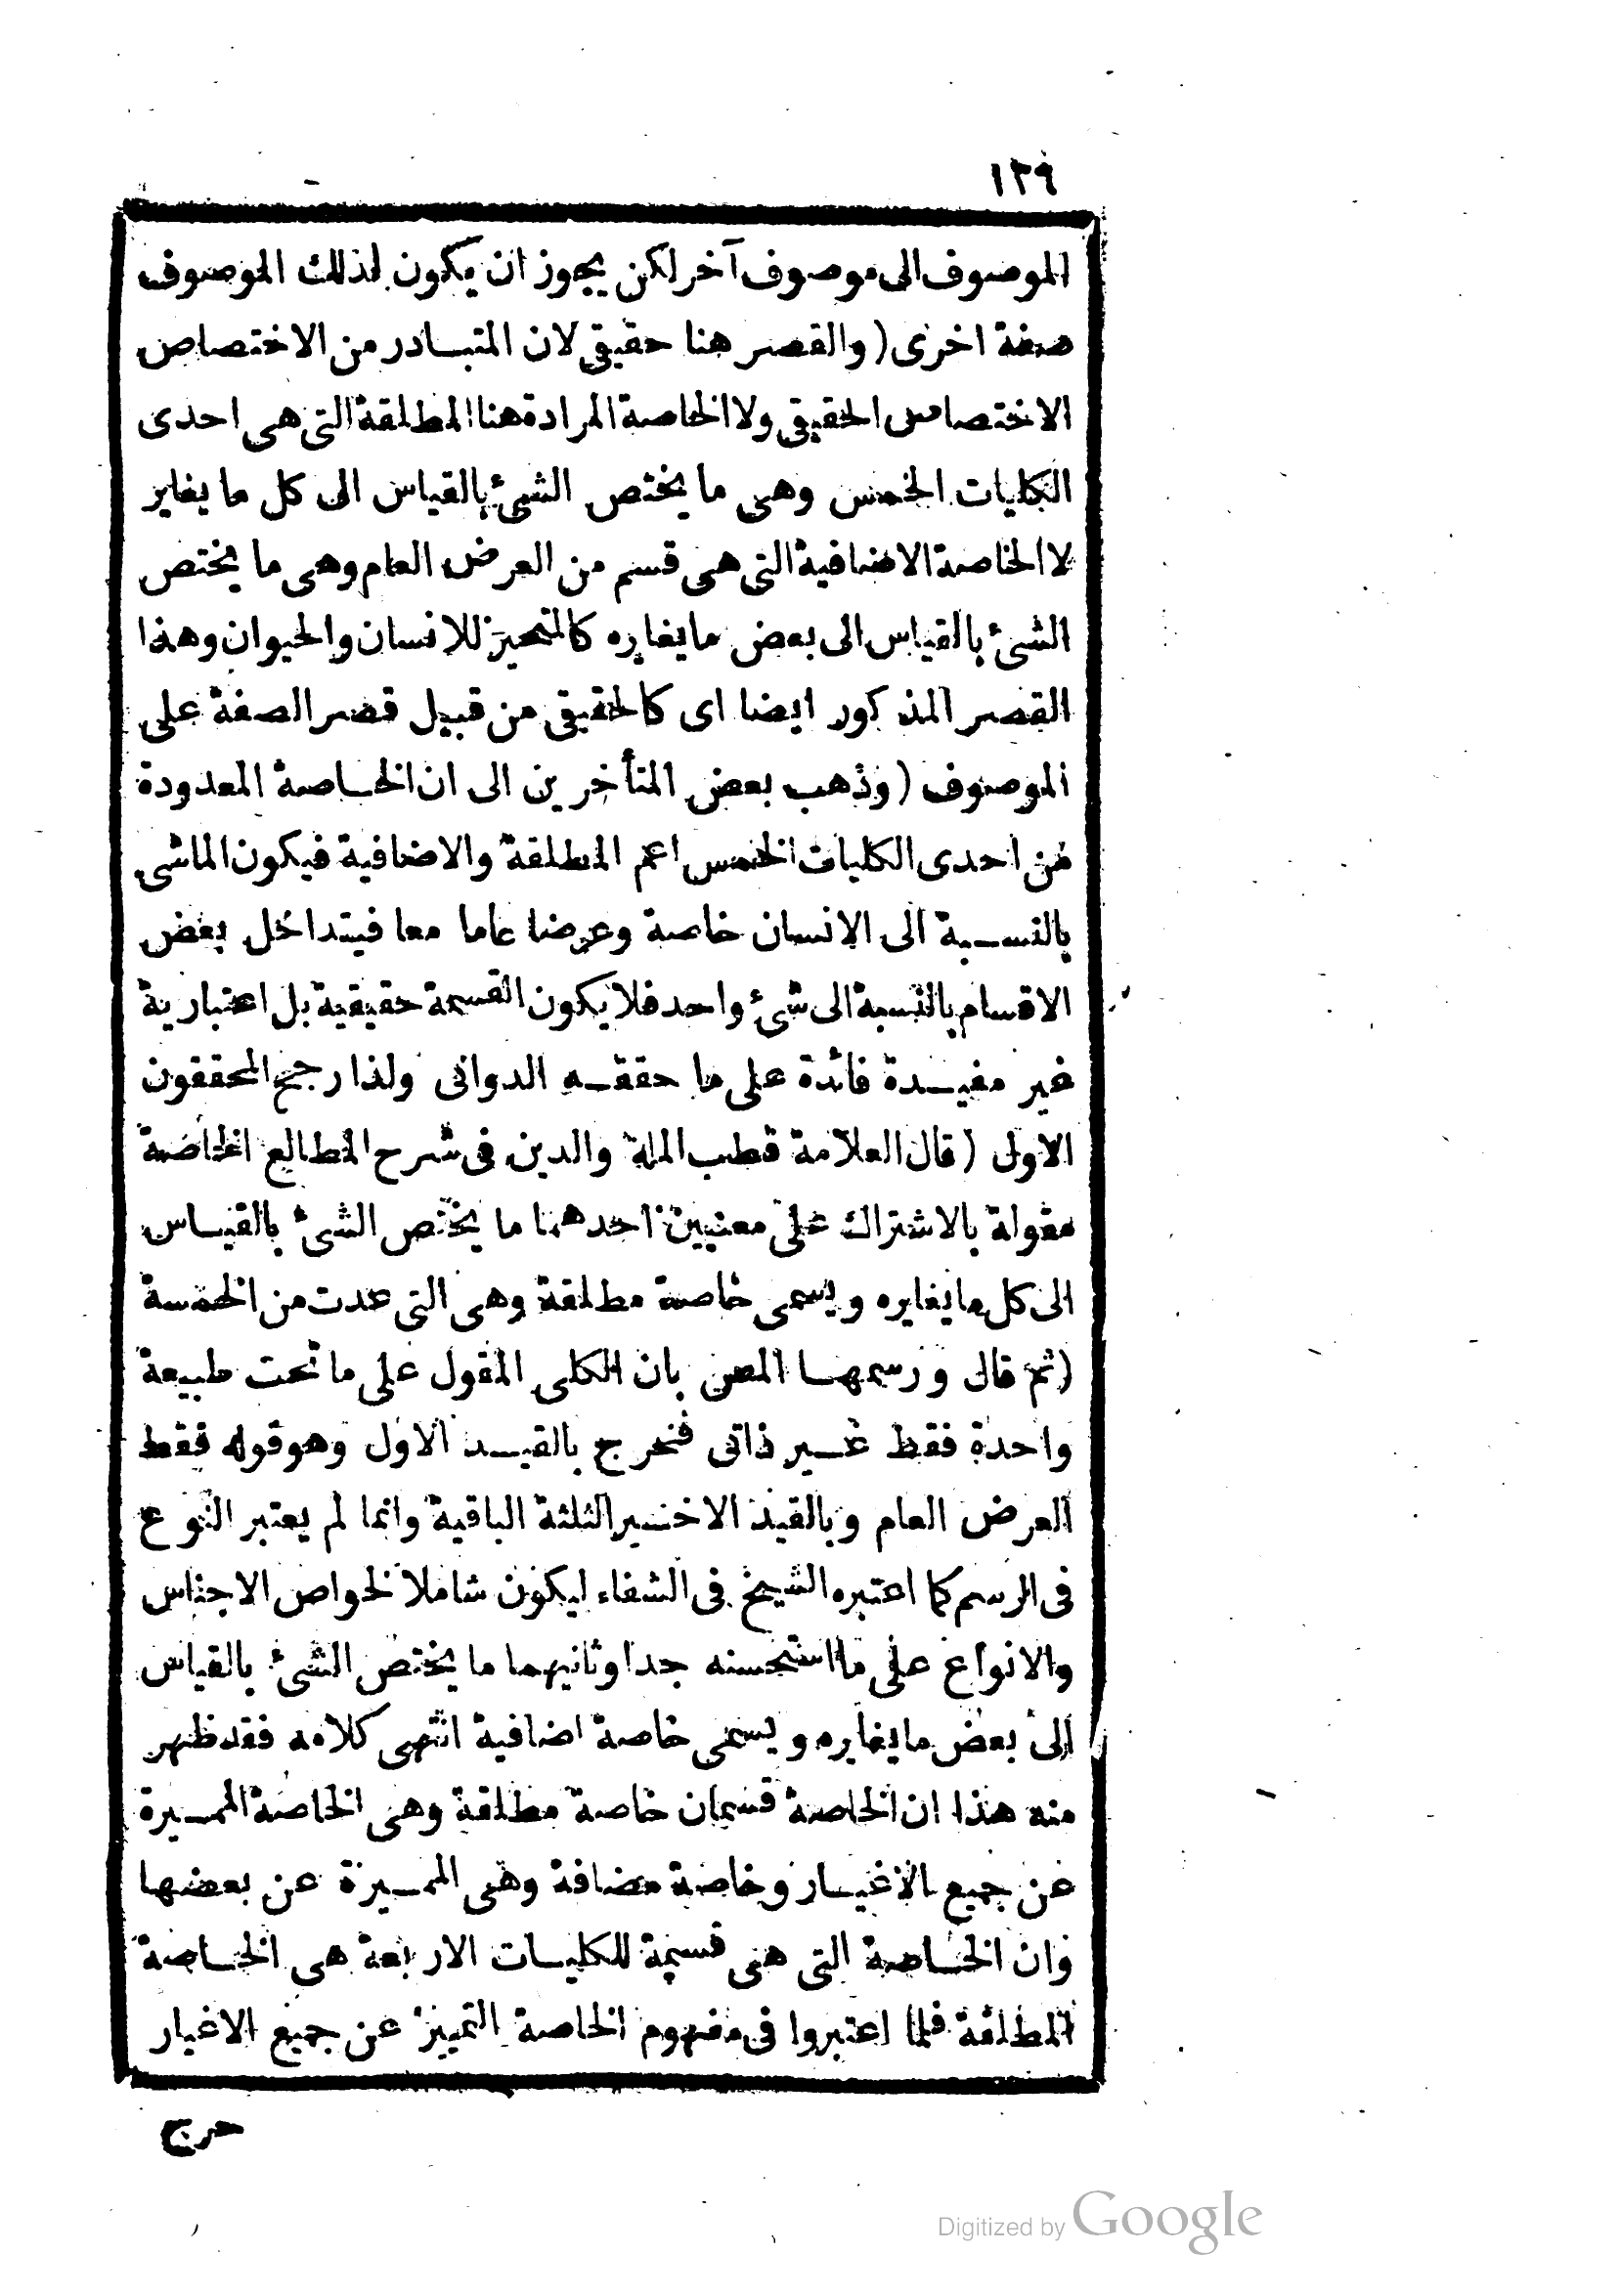 ١٢٩
الموصوف الى موصوف آخر لكن يجوز ان يكون لذلك الموصوف
صفة اخرى ( والقصر هنا حقيقى لان المتبادر من الاختصاص
الاختصاص الحقيقى ولا الخاصة المرادة هنا المطلقة التى هى احدى
الكليات الخمس وهى ما يختص الشئ بالقياس الى كل ما يغاير
لا الخاصة الاضافية التى هى قسم من العرض العام وهى ما يختص
الشئ بالقياس الى بعض ما يغايره كالمتحيز للانسان والحيوان وهذا
القصر المذكور ايضا اى كالحقيقى من قبيل قصر الصفة على
الموصوف ( وذهب بعض المتأخرين الى ان الخاصة المعدودة
من احدى الكليات الخمس اعم المطلقة والاضافية فيكون الماشى
بالنسبة الى الانسان خاصة وعرضا عاما معا فيتداخل بعض
الاقسام بالنسبة الى شئ واحد فلا يكون القسمة حقيقية بل اعتبارية
غير مفيدة فائدة على ما حققه الدوانى ولذا رجح المحققون
الاول ( قال العلامة قطب الملة والدين فى شرح المطالع الخاصة
مقولة بالاشتراك على معنيين احدهما ما يختص الشئ بالقياس
الى كل ما يغايره ويسمى خاصة مطلقة وهى التى عدت من الخمسة
( ثم قال ورسمها المص بان الكلى المقول على ما تحت طبيعة
واحدة فقط غير ذاتى فخرج بالقيد الاول وهو قوله فقط
العرض العام وبالقيد الاخير الثلثة الباقية وانما لم يعتبر النوع
فى الرسم كما اعتبره الشيخ فى الشفاء ليكون شاملا لخواص الاجناس
والانواع على ما استحسنه جدا وثانيهما ما يختص الشئ بالقياس
الى بعض ما يغايره ويسمى خاصة اضافية انتهى كلامه فقد ظهر
منه هذا ان الخاصة قسمان خاصة مطلقة وهى الخاصة المميزة
عن جميع الاغيار وخاصة مضافة وهى المميزة عن بعضها
وان الخاصة التى هى قسيمة للكليات الاربعة هى الخاصة
المطلقة فلما اعتبروا فى مفهوم الخاصة التمييز عن جميع الاغيار
خرج
Digitized by Google